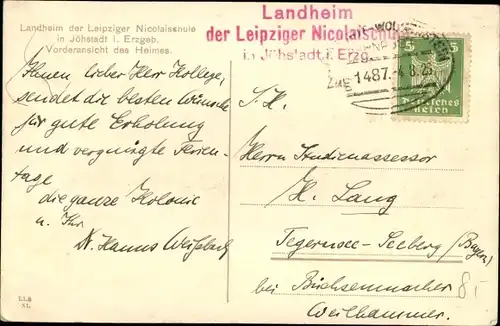 Landheim der Leipziger Nicolaischule
in Jöhstadt i. Erzgeb.
Vorderansicht des Heimes.
Landheim
der Leipziger Nicolaischule
in Jöhstadt i. Erzg
1487 4.8.25
ZUG
5 5
Deutsches
Reich
Ihnen, lieber Herr Kollege,
sendet die besten Wünsche
für gute Erholung
und vergnügte Ferien-
tage
die ganze Kolonie
u. Ihr
Hanns
S. H.
Herrn Studienassessor
H. Lang
Tegernsee-Seeberg (Bayern)
bei Büchsenmacher
Weilhammer.
8,-